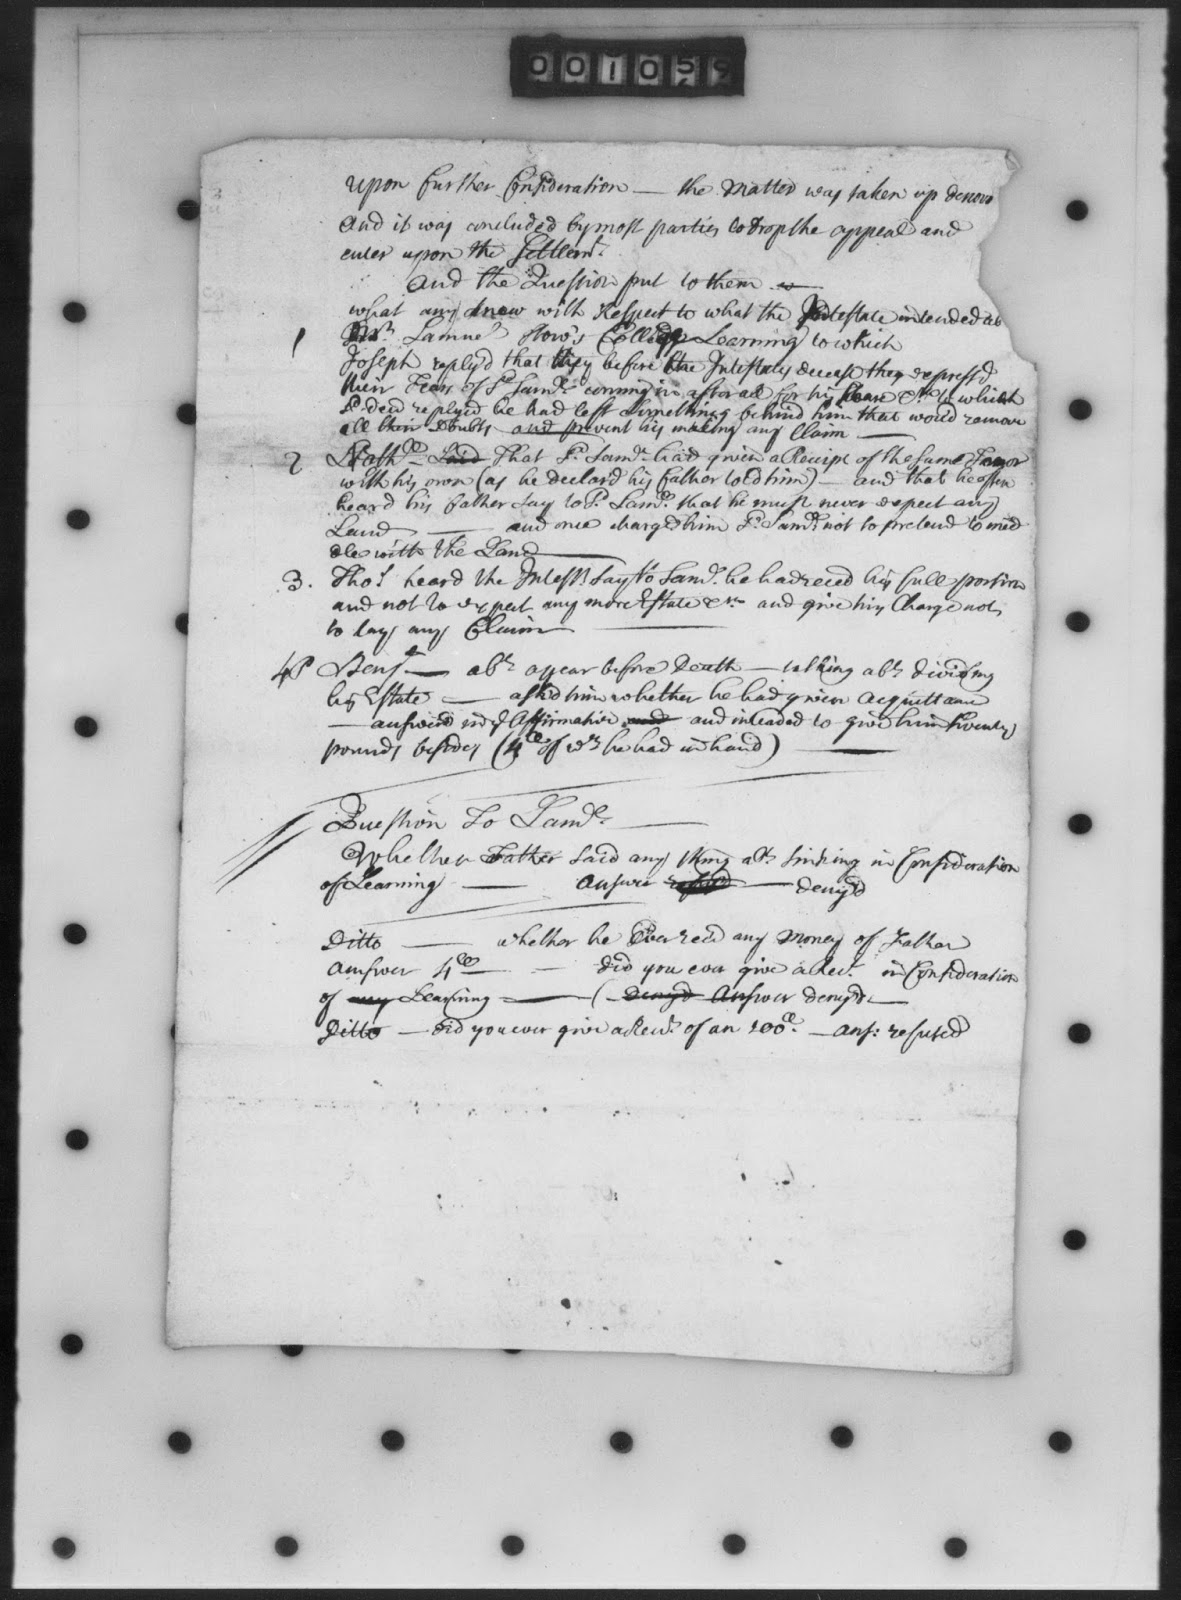 001059
upon further Consideration — the Matter was taken up denovo
and it was concluded by most parties to drop the appeal and
enter upon the Settlemt.
and the Question put to them
what any knew with Respect to what the Intestate intended as
1 Mr. Samuel How's College Learning to which
Joseph reply'd that they before the Intestates decease they express'd
their Fears of Sd. Saml. coming in after all for his share &c. to which
Sd. decd replyed he had left something behind him that would remove
all their doubts and prevent his making any Claim —
2 Nathll. Said That Sd. Saml. had given a Receipt of the same Tenor
with his own (as he declard his father told him) — and that he often
heard his father say to Sd. Saml. that he must never expect any
Land — and once charged him Sd. Saml. not to pretend to med
dle with the Land —
3. Thos. heard the Intestt. say to Saml. he had recd his full portion
and not to expect any more Estate &c. and give him Charge not
to lay any Claim —
4 Benja. — abt. a year before Death — talking abt. dividing
his Estate — ask'd him whether he had given acquittance
— answerd in ye Affirmative and and intended to give him twenty
pounds besides (4 of wch. he had in hand) —
Question To Saml. —
Whether Father said any thing abt. sinking in Consideration
of Learning — answer — denyd
Ditto — whether he Ever recd any Money of Father
answer 4 — did you ever give a Rect. in Consideration
of any Learning — ( denyd Answer denyd —
Ditto — did you ever give a Rect. of an 100. — ans: refused